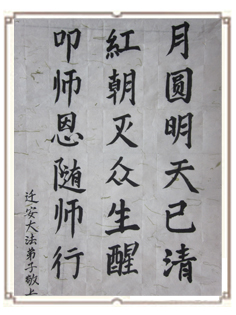 月圆明天已清
红朝灭众生醒
叩师恩随师行
迁安大法弟子敬上